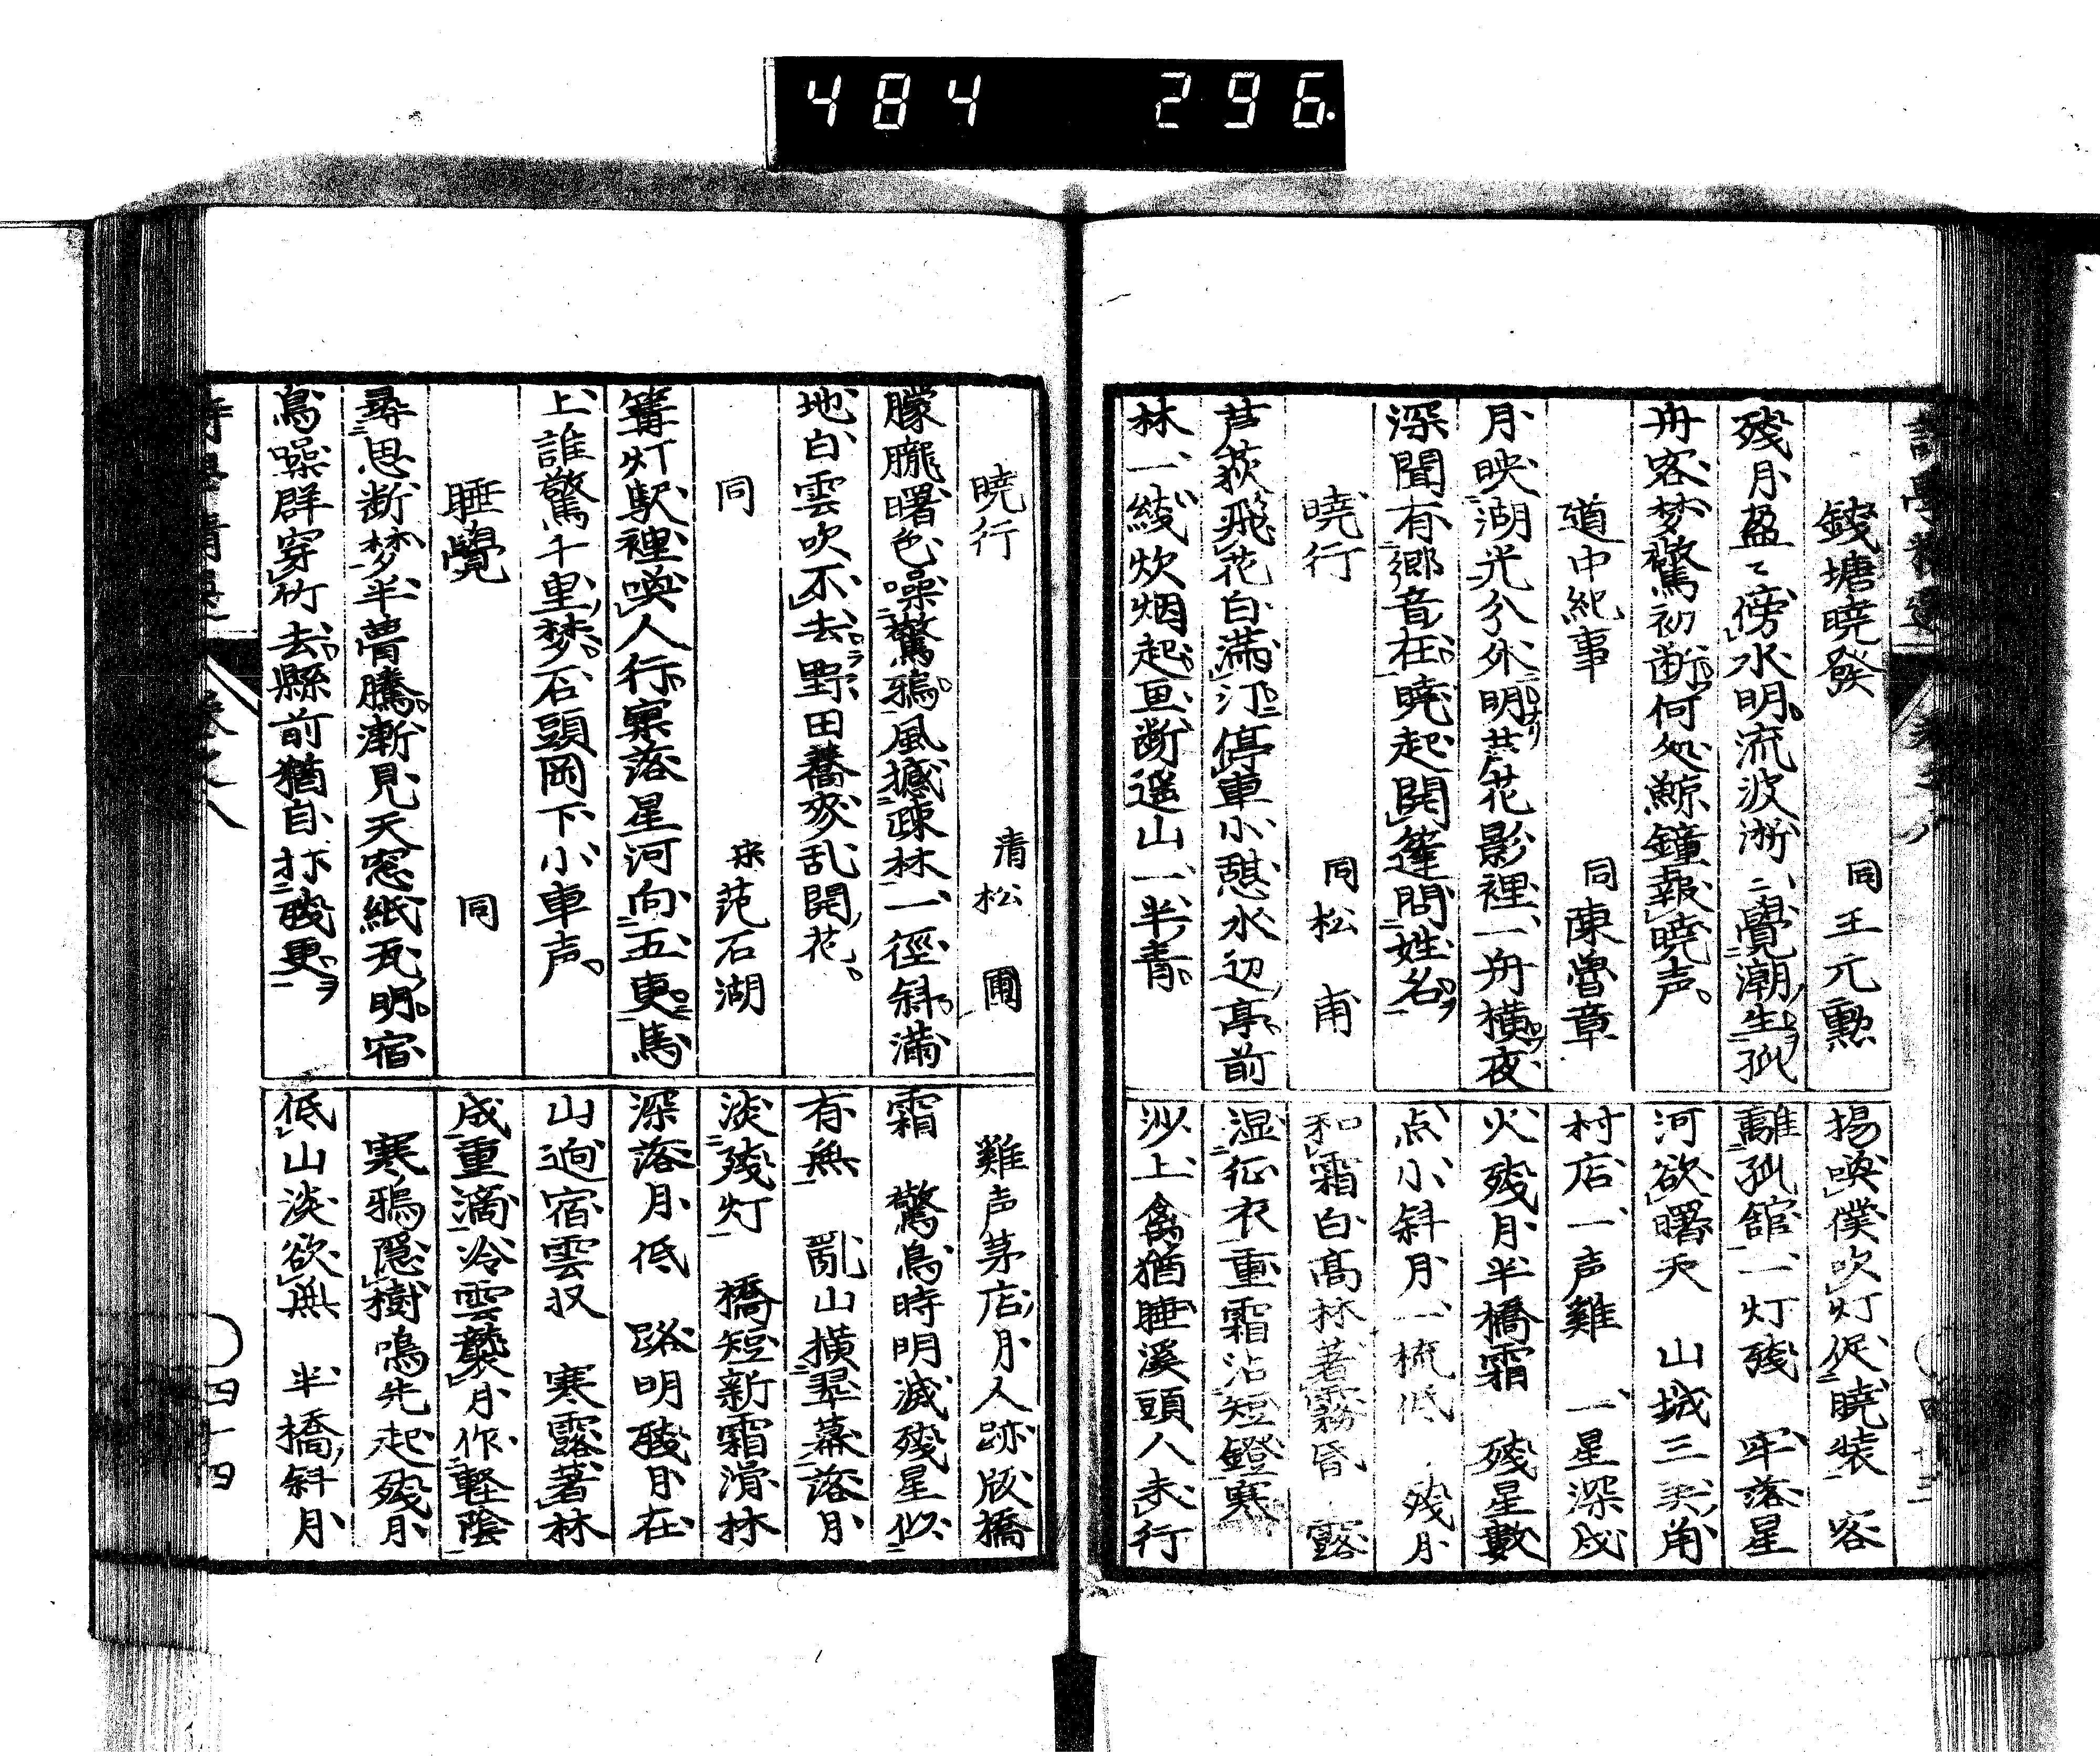 484 296.
錢塘暁發 同王元勲
殘月盈〻傍水明流波淅〻覺潮生孤
舟客梦驚初断何処鯨鐘報暁声
道中紀事 同陳曽章
月映湖光分外明芦花影裡一舟横夜
深聞有郷音在暁起開篷問姓名
暁行 同松甫
芦荻飛花白満汀停車小憩水辺亭前
林一綫炊烟起更断遥山一半青
揚喚僕吹灯促暁装 客
離孤舘一灯殘 牢落星
河欲曙天 山城三美角
村店一声雞 一星深戍
火殘月半橋霜 殘星數
点小斜月一梳低 殘月
和霜白髙林著霧昏 露
湿征衣重霜沾短鐙寒
沙上禽猶睡溪頭人未行
暁行 清松圃
朦朧曙色噪驚鴉風撼疎林一徑斜満
地白雲吹不去野田蕎麥乱開花
同 宋范石湖
篝灯駅裡喚人行寥落星河向五更馬
上誰驚千里梦石頭岡下小車声
睡覺 同
尋思断梦半瞢騰漸見天窓紙瓦明宿
鳥噪群穿竹去縣前猶自打殘更
雞声茅店月人跡版橋
霜 驚鳥時明滅殘星似
有無 亂山横翠幕落月
淡殘灯 橋短新霜滑林
深落月低 路明殘月在
山逈宿雲収 寒露著林
成重滴冷雲襲月作軽陰
寒鴉隠樹鳴先起殘月
低山淡欲無 半橋斜月
四十四